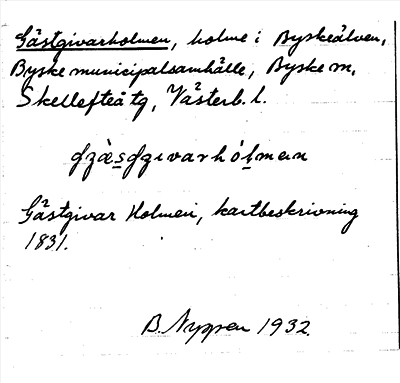 Gästgivarholmen, holme i Byskeälven,
Byske municipalsamhälle, Byske sn,
Skellefteå tg, Västerb. l.
Gästgivar Holmen, kartbeskrivning
1831.
B. Nygren 1932.